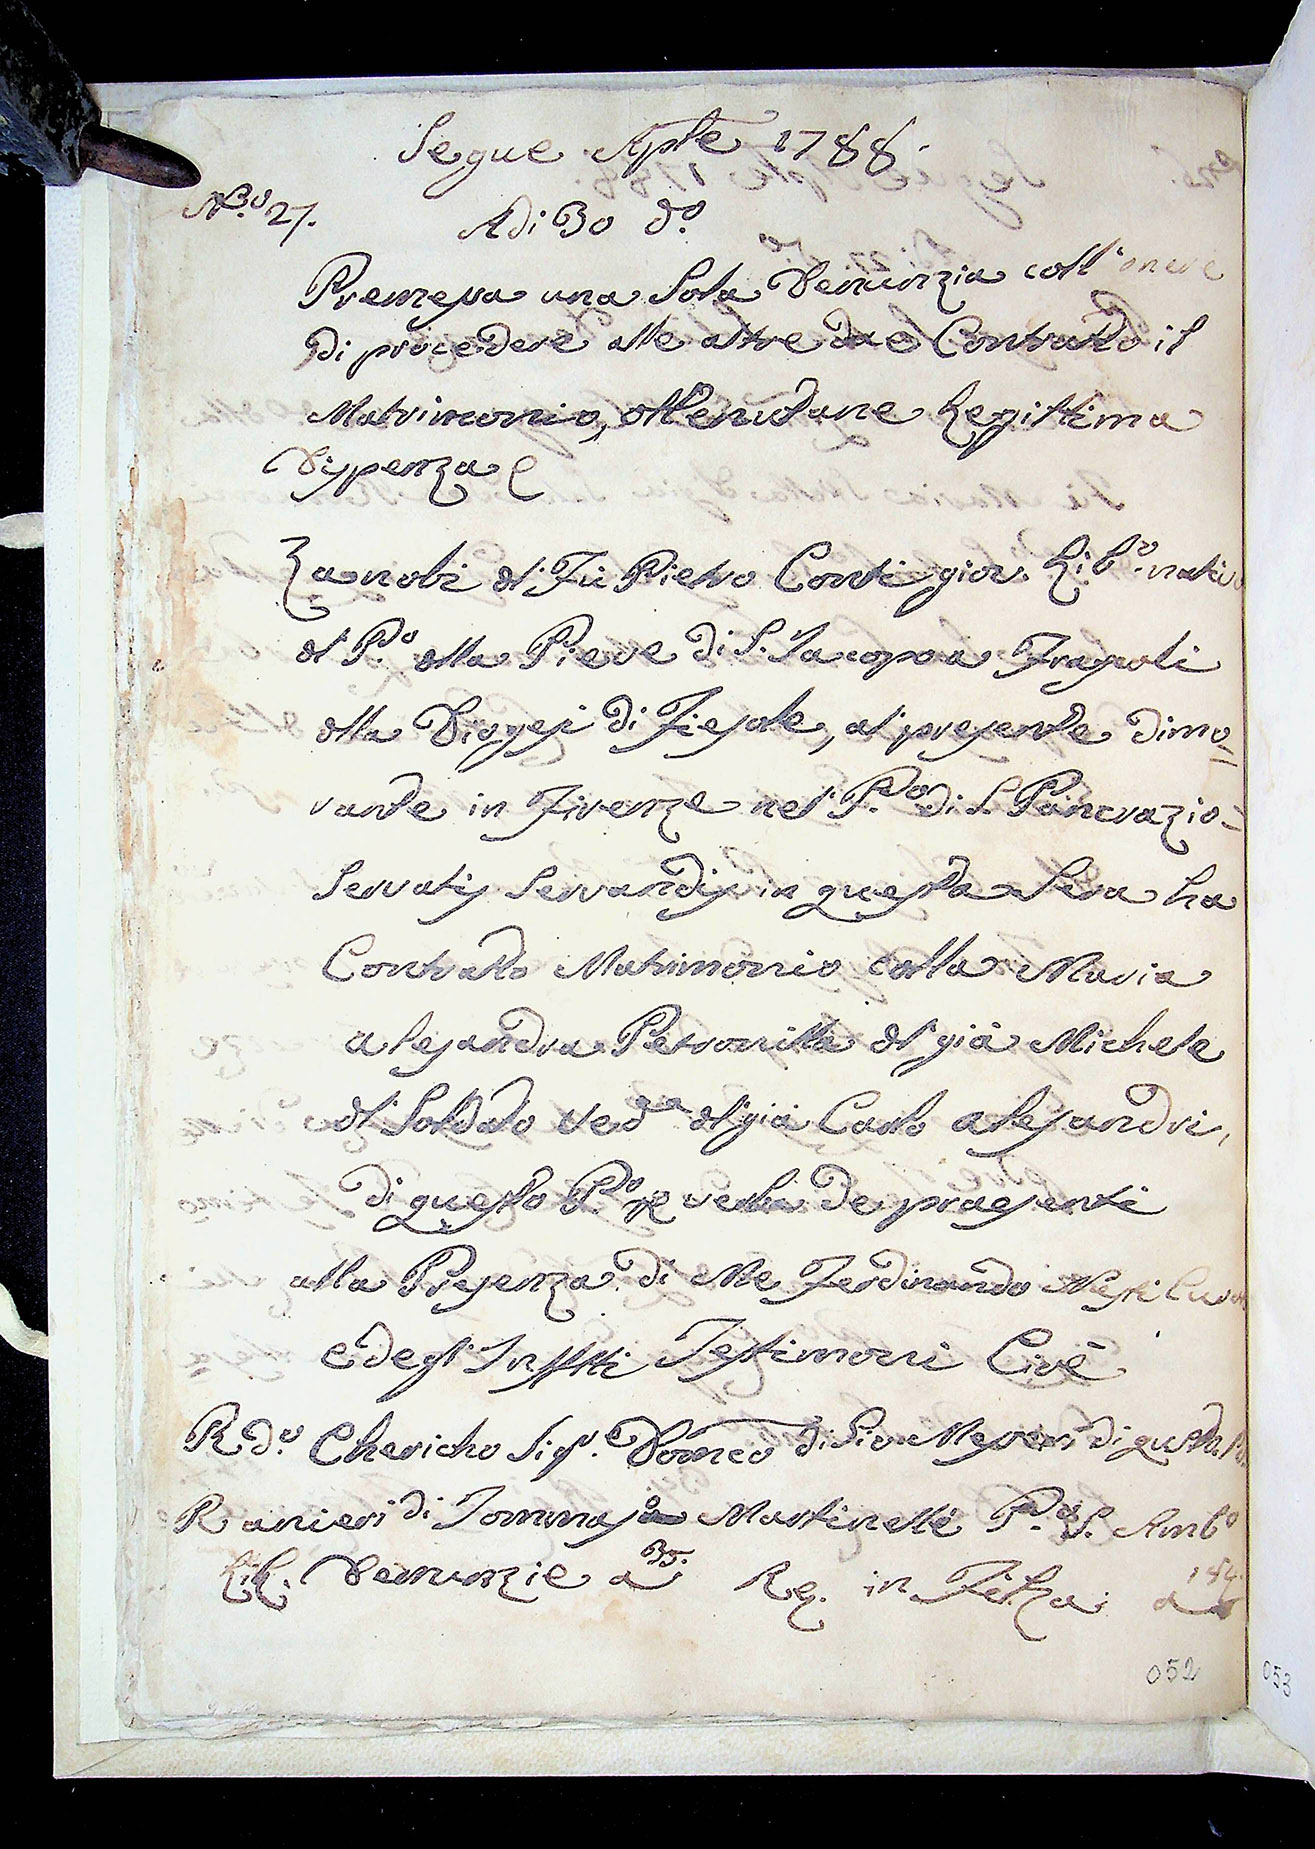 Segue Aple 1788.
No. 27.
Adi 30 do.
Premessa una Sola Denunzia coll'onere
di procedere alle altre due Contratto il
Matrimonio, ottenutane Legittima
Dispenza
Zanobi dl' Fu Pietro Conti giov. Lib.o nativo
dl P.o dlla Pieve di S. Jacopo a Frascoli
dlla Diogesi di Fiesole, al presente dimo=
rante in Firenze nel P.o di S. Pancrazio=
Servatis Servandis in questa Sera ha
Contratto Matrimonio colla Maria
Alesandra Petronilla dl già Michele
dl' Soldato Ved.a dl già Carlo Alesandri,
di questo P.o p verba de praesenti
alla Presenza di Me Ferdinando Curato
e degl' Infftti Testimoni Cioè
R do. Chericho Sigr. Domco di Pio di questo P.o
Ranieri di Tommaso Martinelli P. S. Amb.o
Lib. Denunzie a 35. Reg. in Filza a
052
053